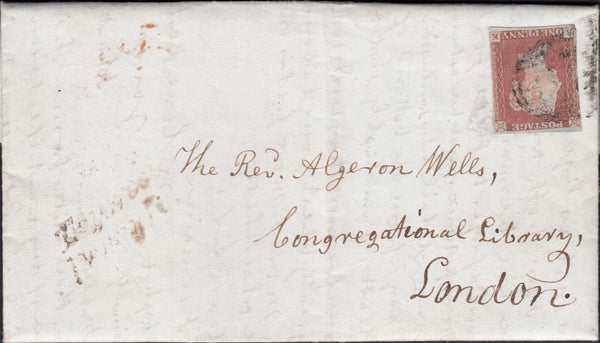 POSTAGE
ONE PENNY
The Rev. Algeron Wells,
Congregational Library,
London.